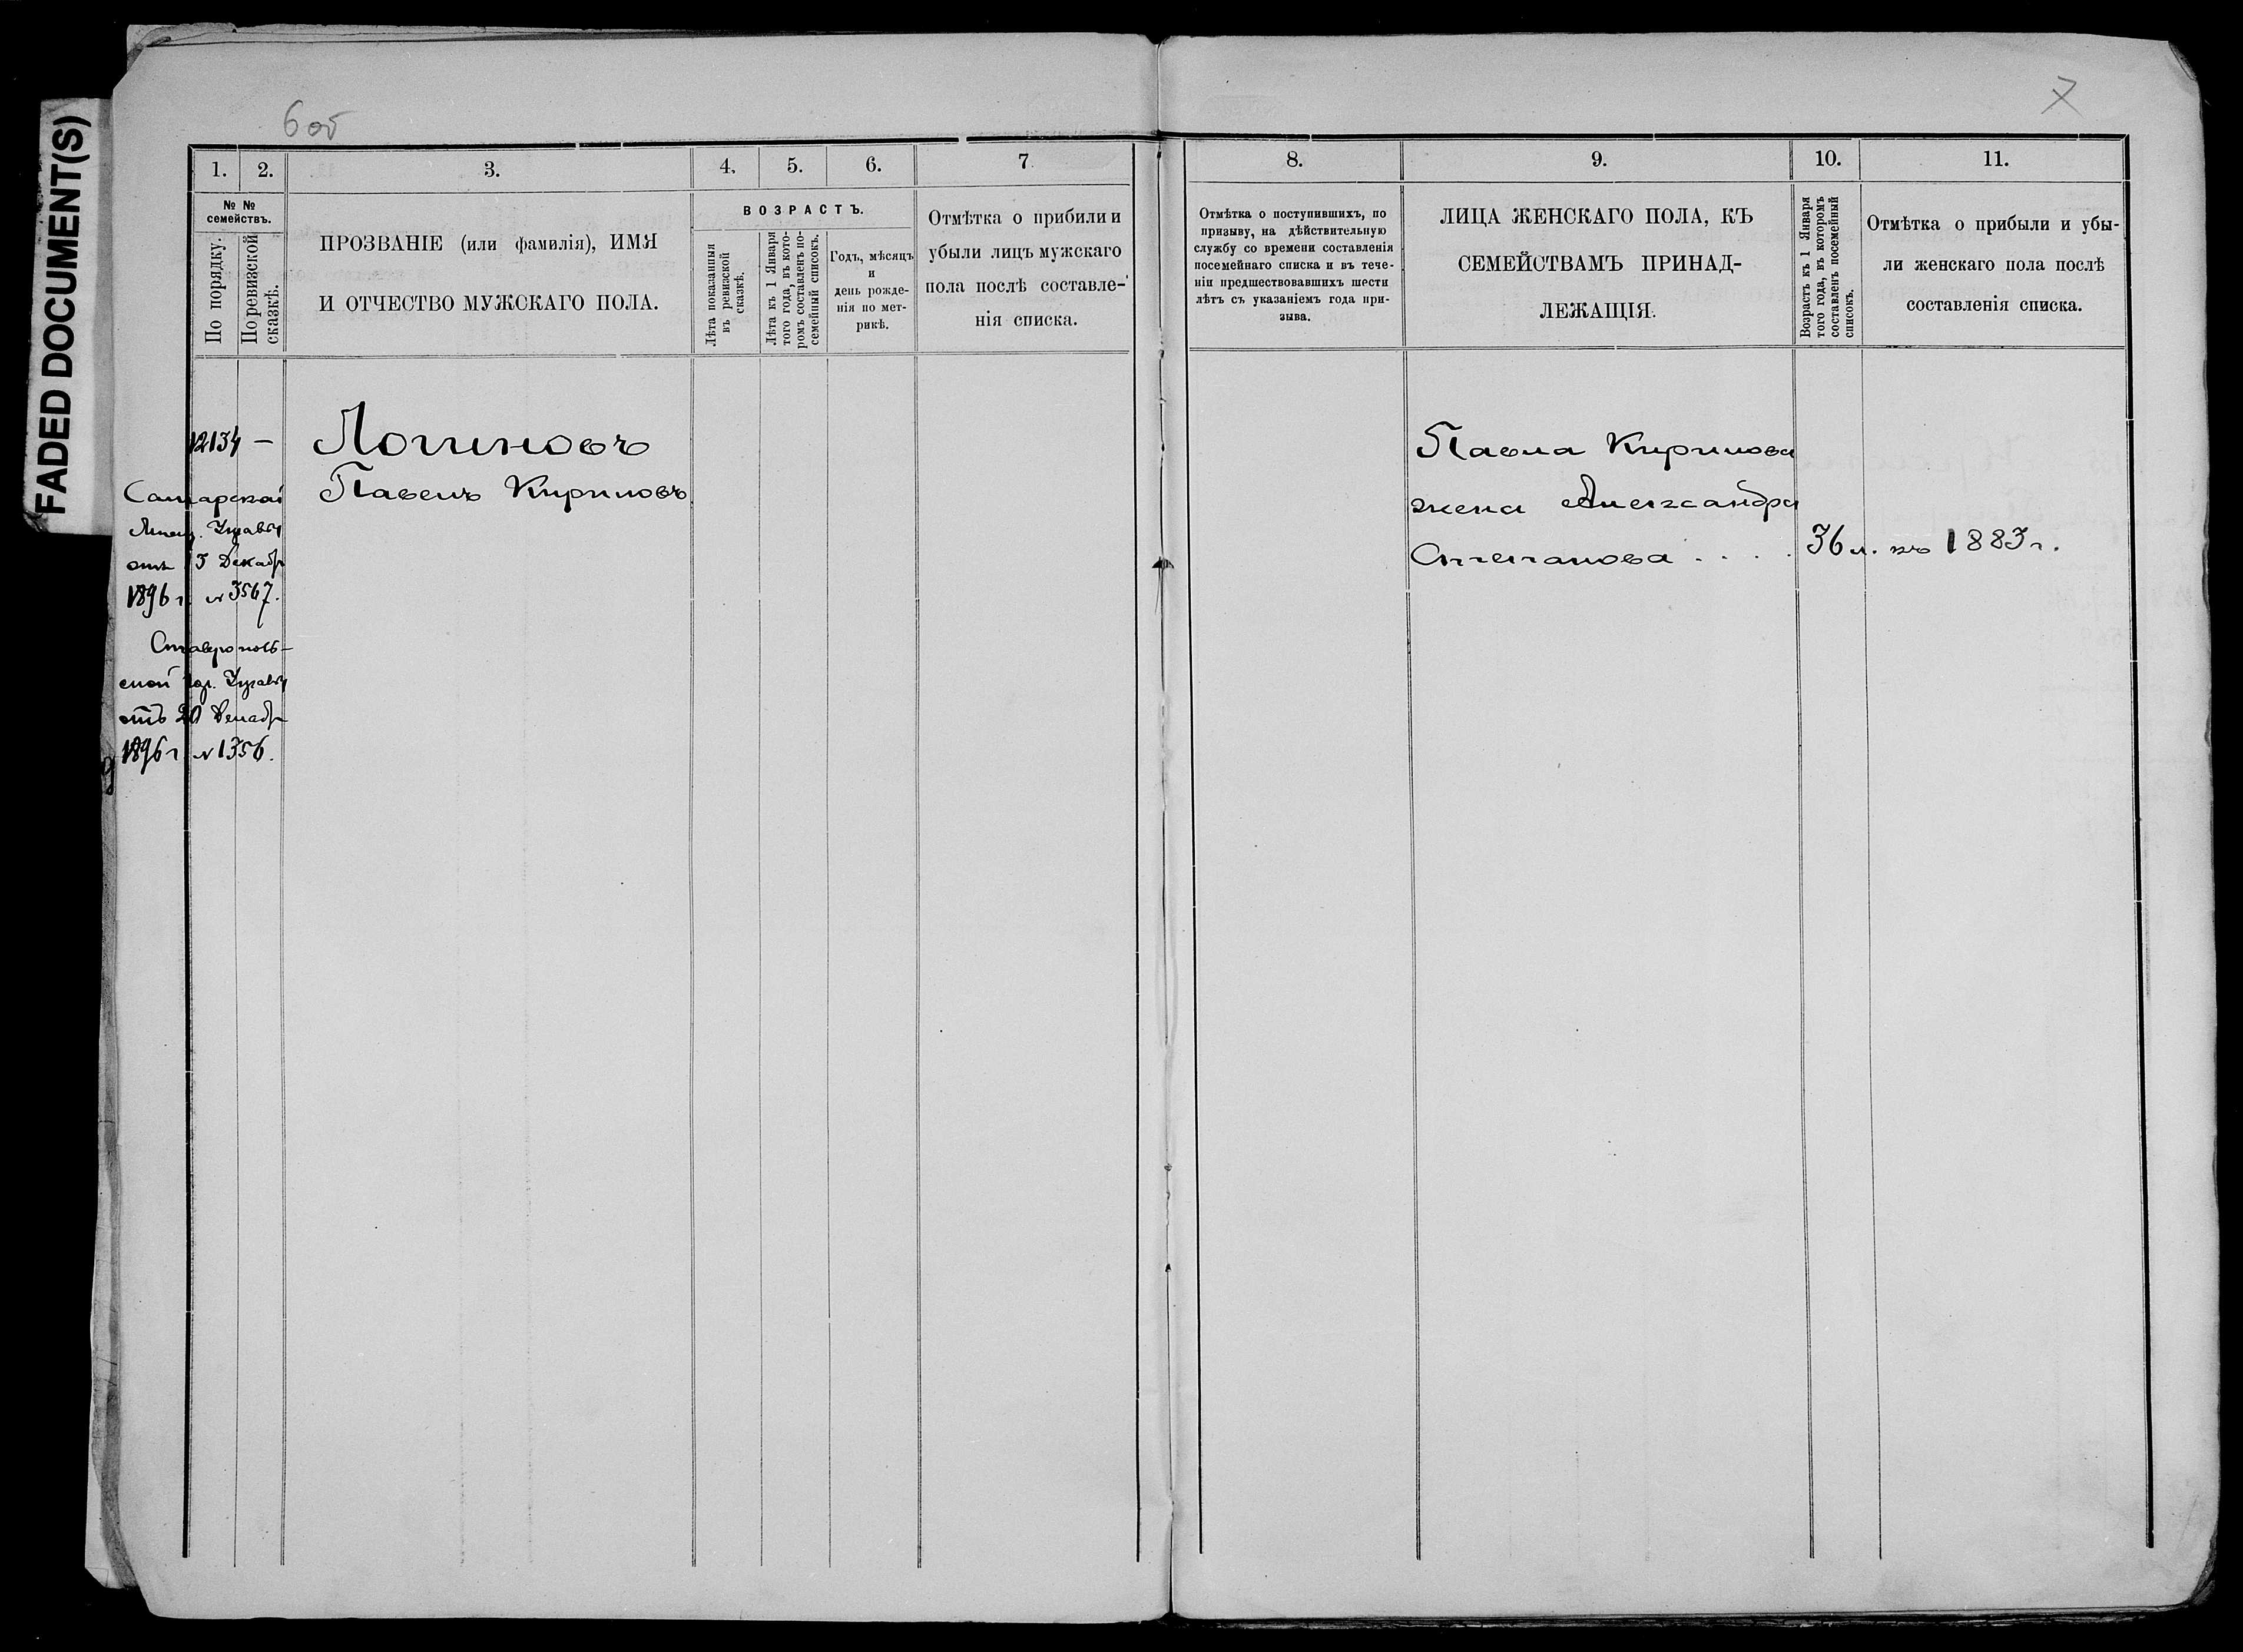 FADED DOCUMENT(S)
6 об
7
1.
2.
3.
4.
5.
6.
7
8.
9.
10.
11.
№ №
семействъ.
По порядку.
По ревизской
сказкѣ.
ПРОЗВАНІЕ (или фамилія), ИМЯ
И ОТЧЕСТВО МУЖСКАГО ПОЛА.
ВОЗРАСТЪ.
Лѣта показанныя
въ ревизской
сказкѣ.
Лѣта къ 1 Января
того года, въ кото-
ромъ составленъ по-
семейный списокъ.
Годъ, мѣсяцъ
и
день рожде-
нія по мет-
рикѣ.
Отмѣтка о прибили и
убыли лицъ мужскаго
пола послѣ составле-
нія списка.
Отмѣтка о поступившихъ, по
призыву, на дѣйствительную
службу со времени составленія
посемейнаго списка и въ тече-
ніи предшествовавшихъ шести
лѣтъ съ указаніемъ года при-
зыва.
ЛИЦА ЖЕНСКАГО ПОЛА, КЪ
СЕМЕЙСТВАМЪ ПРИНАД-
ЛЕЖАЩІЯ.
Возрастъ къ 1 Января
того года, въ которомъ
составленъ посемейный
списокъ.
Отмѣтка о прибыли и убы-
ли женскаго пола послѣ
составленія списка.
12134 —
Логиновъ
Павелъ Кириловъ
Самарской
Мѣщ. Управы
отъ 13 Декабр
1896 г. № 3567.
Ставрополь-
ской Гор. Управы
отъ 20 Декабр
1896 г. № 1356.
Павла Кирилова
жена Александра
Степанова . . . . 36 л. къ 1883 г.